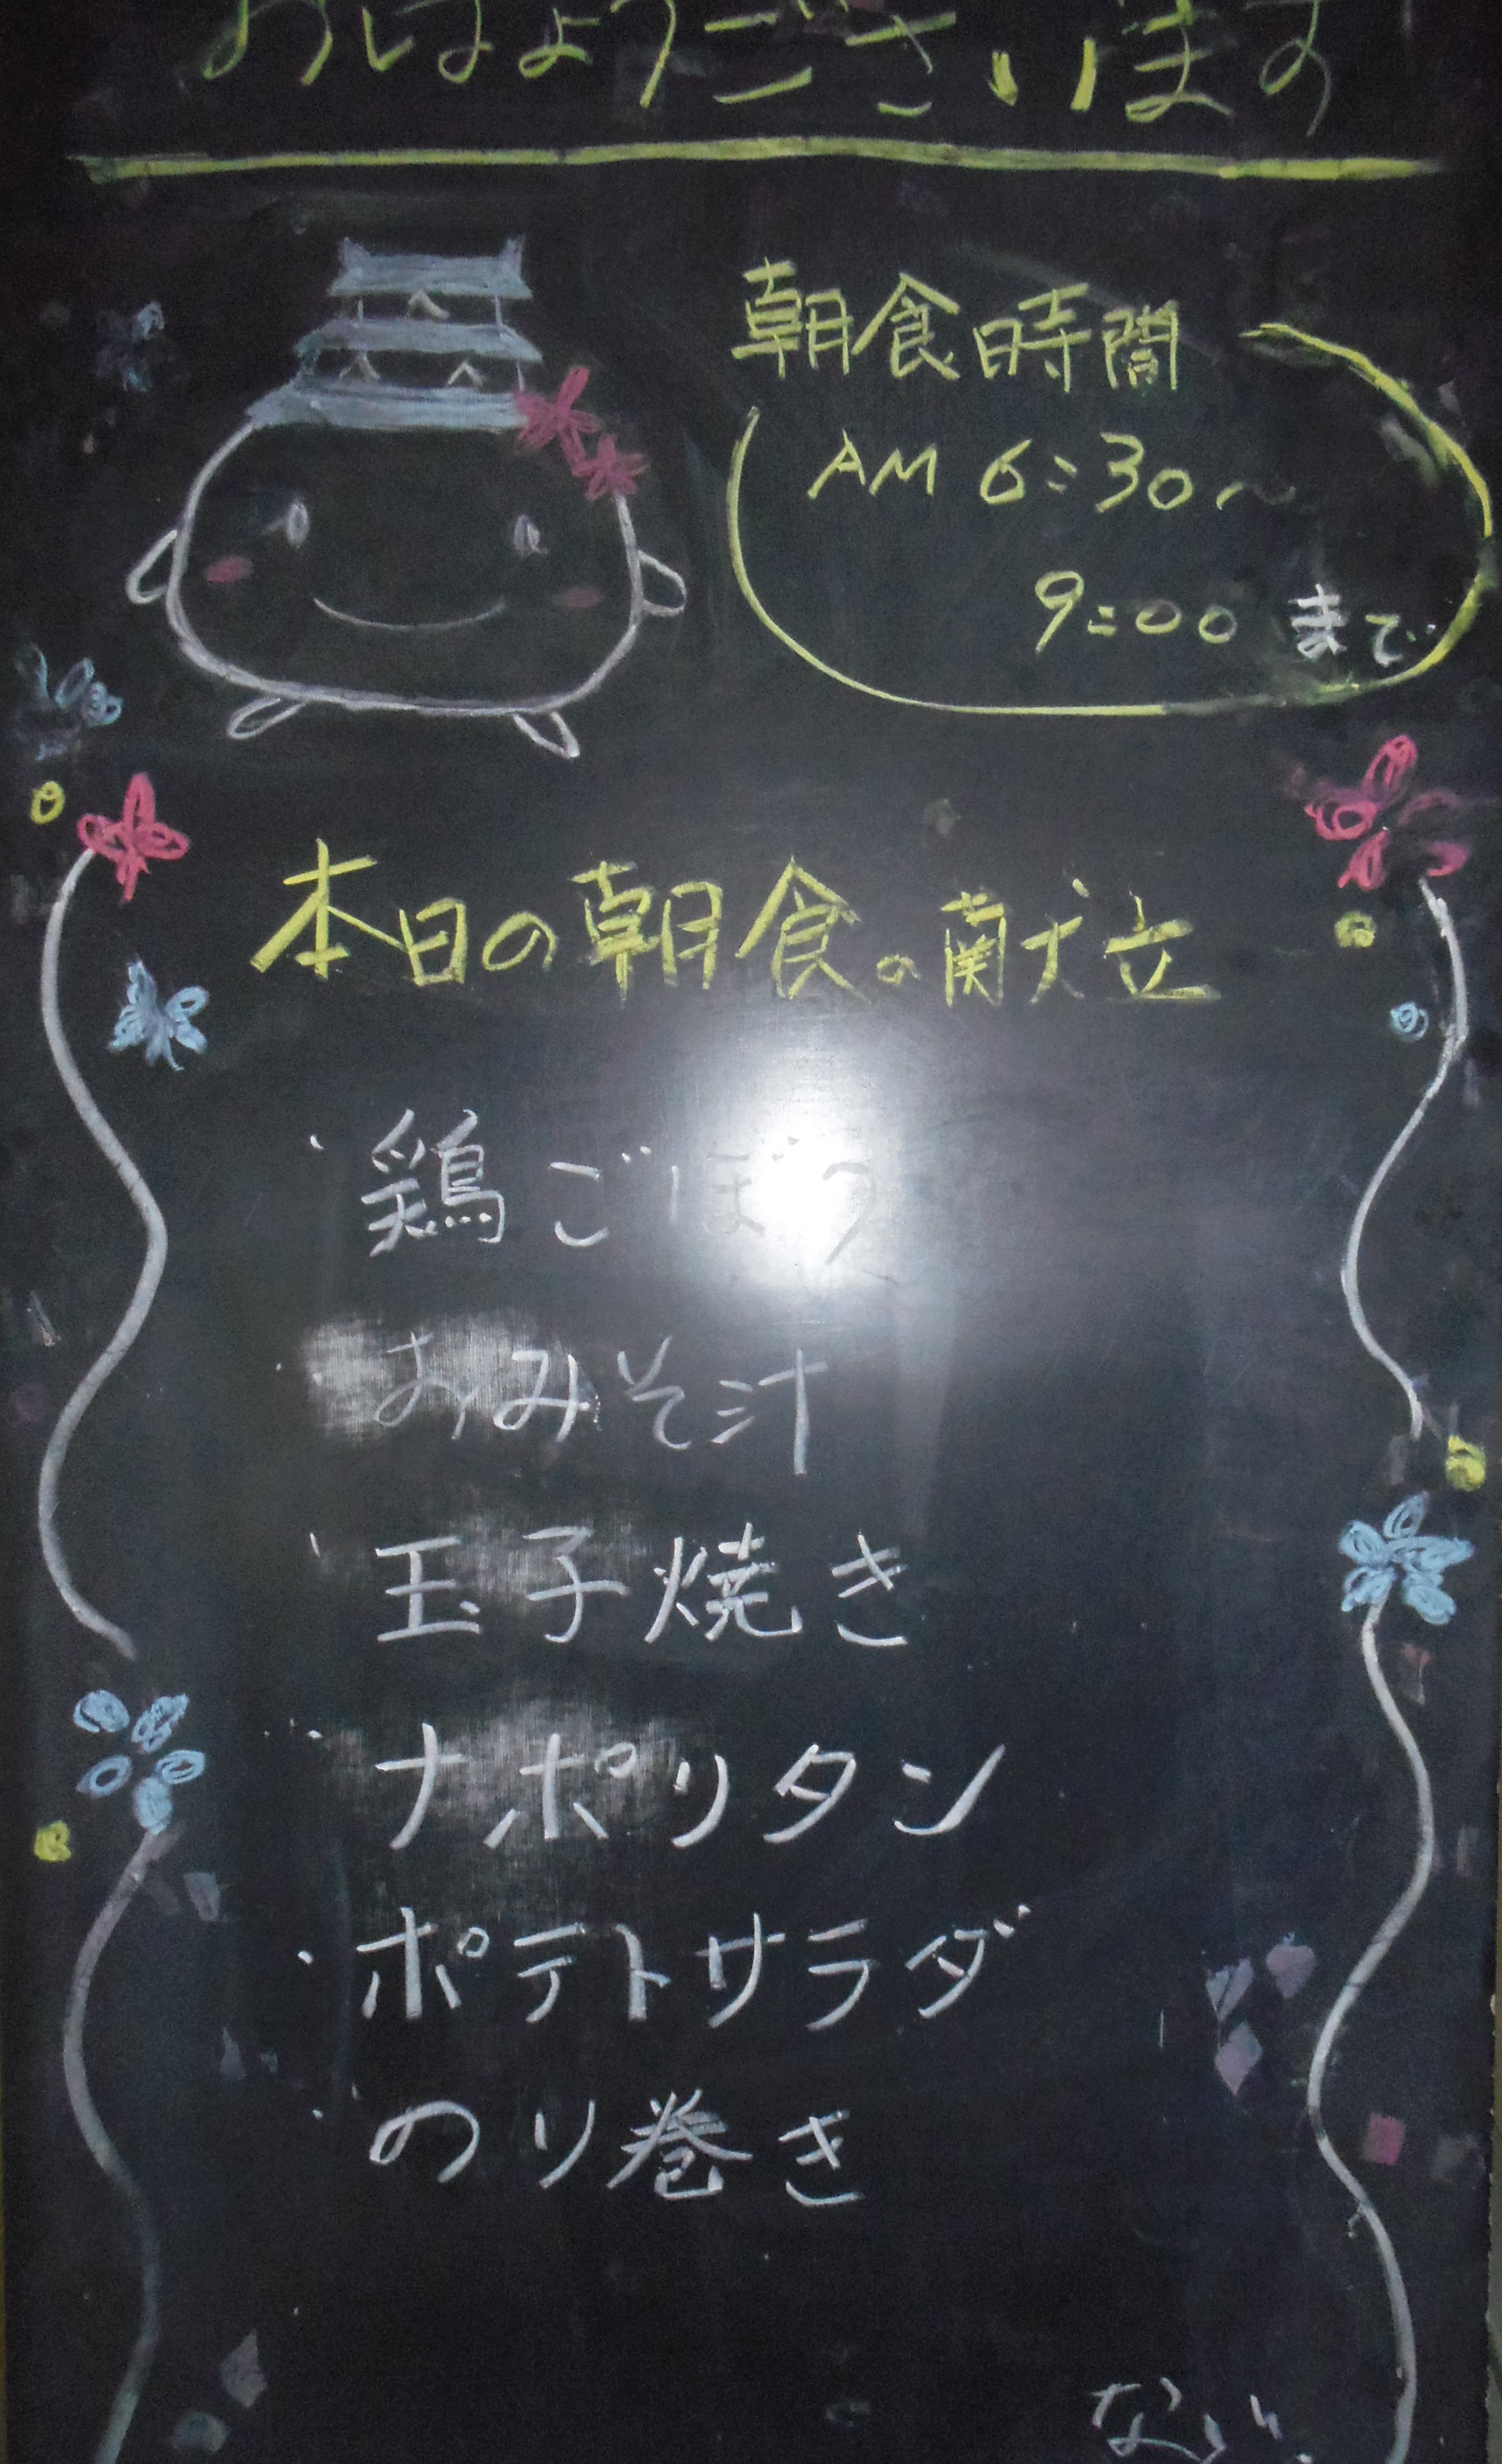 おはようございます
朝食時間
AM 6:30～
9:00 まで
本日の朝食の献立
・鶏ごぼう
・おみそ汁
・玉子焼き
・ナポリタン
・ポテトサラダ
・のり巻き
など